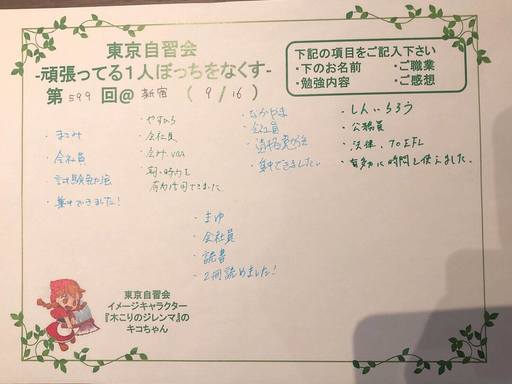 東京自習会
-頑張ってる1人ぼっちをなくす-
第 599 回@ 新宿 ( 9 / 16 )
下記の項目をご記入下さい
・下のお名前 ・ご職業
・勉強内容 ・ご感想
・まこみ
・会社員
・試験勉強
・集中できました!
・やすひろ
・会社員
・会計、VBA
・朝の時間を
有効活用できました
・なかやま
・会社員
・資格勉強
・集中できました。
・しんいちろう
・公務員
・法律、TOEFL
・有効に時間を使えました。
・まゆ
・会社員
・読書
・2冊読めました!
東京自習会
イメージキャラクター
『木こりのジレンマ』の
キコちゃん